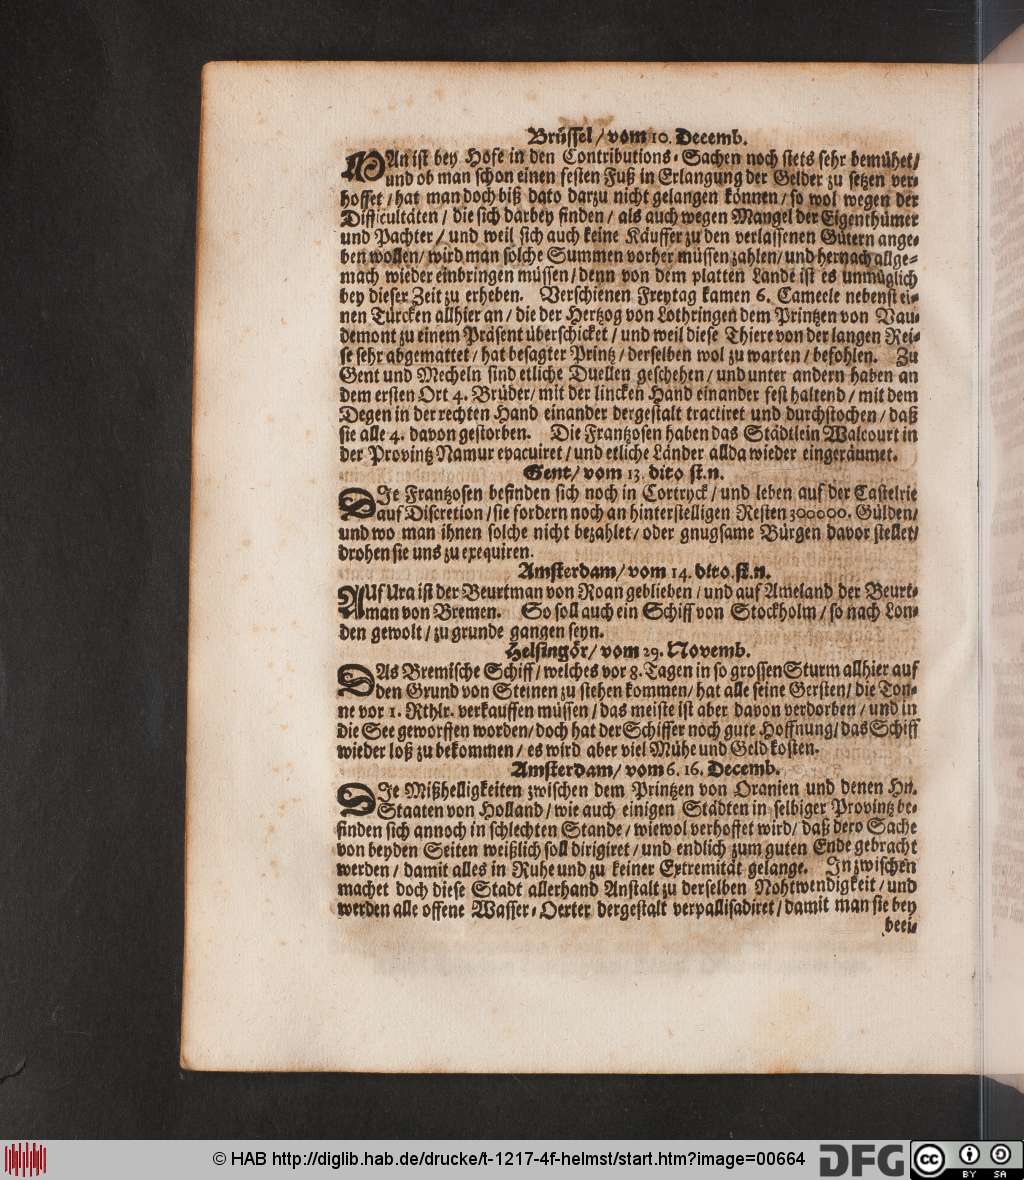 Brüssel / vom 10. Decemb.
MAn ist bey Hofe in den Contributions-Sachen noch stets sehr bemühet /
und ob man schon einen festen Fuß in Erlangung der Gelder zu setzen ver-
hoffet / hat man doch biß dato darzu nicht gelangen können / so wol wegen der
Difficultäten / die sich darbey finden / als auch wegen Mangel der Eigenthümer
und Pachter / und weil sich auch keine Käuffer zu den verlassenen Gütern ange-
ben wollen / wird man solche Summen vorher müssen zahlen / und hernach allge-
mach wieder einbringen müssen / denn von dem platten Lande ist es unmüglich
bey dieser Zeit zu erheben. Verschienen Freytag kamen 6. Cameele nebenst ei-
nen Türcken allhier an / die der Hertzog von Lothringen dem Printzen von Vau-
demont zu einem Präsent überschicket / und weil diese Thiere von der langen Rei-
se sehr abgemattet / hat besagter Printz / derselben wol zu warten / befohlen. Zu
Gent und Mecheln sind etliche Duellen geschehen / und unter andern haben an
dem ersten Ort 4. Brüder / mit der lincken Hand einander fest haltend / mit dem
Degen in der rechten Hand einander dergestalt tractiret und durchstochen / daß
sie alle 4. davon gestorben. Die Frantzosen haben das Städtlein Walcourt in
der Provintz Namur evacuiret / und etliche Länder allda wieder eingeräumet.
Gent / vom 13. dito st.n.
DIe Frantzosen befinden sich noch in Cortryck / und leben auf der Castelrie
auf Discretion / sie fordern noch an hinterstelligen Resten 300000. Gülden /
und wo man ihnen solche nicht bezahlet / oder gnugsame Bürgen davor stellet /
drohen sie uns zu exequiren.
Amsterdam / vom 14. dito. st.n.
AUf Ura ist der Beurtman von Roan geblieben / und auf Ameland der Beurt-
man von Bremen. So soll auch ein Schiff von Stockholm / so nach Lon-
den gewolt / zu grunde gangen seyn.
Helsingör / vom 29. Novemb.
DAs Bremische Schiff / welches vor 8. Tagen in so grossen Sturm allhier auf
den Grund von Steinen zu stehen kommen / hat alle seine Gersten / die Ton-
ne vor 1. Rthlr. verkauffen müssen / das meiste ist aber davon verdorben / und in
die See geworffen worden / doch hat der Schiffer noch gute Hoffnung / das Schiff
wieder loß zu bekommen / es wird aber viel Mühe und Geld kosten.
Amsterdam / vom 6. 16. Decemb.
DIe Mißhelligkeiten zwischen dem Printzen von Oranien und denen Hn.
Staaten von Holland / wie auch einigen Städten in selbiger Provintz be-
finden sich annoch in schlechten Stande / wiewol verhoffet wird / daß dero Sache
von beyden Seiten weißlich soll dirigiret / und endlich zum guten Ende gebracht
werden / damit alles in Ruhe und zu keiner Extremität gelange. Inzwischen
machet doch diese Stadt allerhand Anstalt zu derselben Nohtwendigkeit / und
werden alle offene Wasser-Oerter dergestalt verpallisadiret / damit man sie bey
beei-
© HAB http://diglib.hab.de/drucke/t-1217-4f-helmst/start.htm?image=00664
DFG
cc BY SA